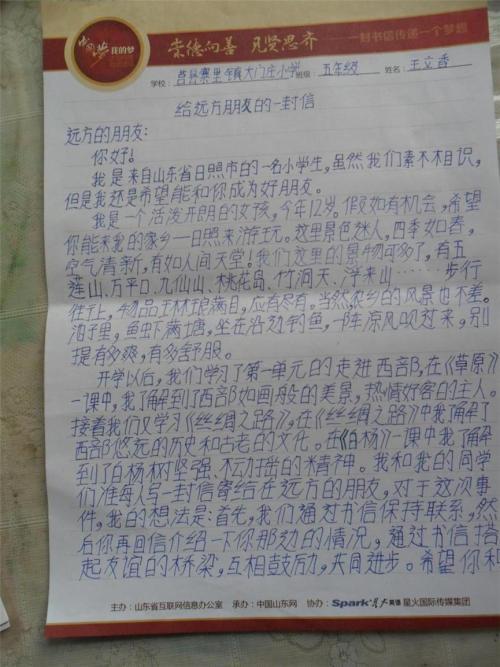 中国梦 我的梦
崇德向善 见贤思齐 一封书信传递一个梦想
学校: 莒县寨里镇大门庄小学 班级: 五年级 姓名: 王立香
给远方朋友的一封信
远方的朋友:
你好!
我是来自山东省日照市的一名小学生,虽然我们素不相识,
但是我还是希望能和你成为好朋友。
我是一个活泼开朗的女孩,今年12岁。假如有机会,希望
你能来我的家乡一日照来游玩。这里景色迷人,四季如春,
空气清新,有如人间天堂!我们这里的景物可多了,有五
莲山、万平口、九仙山、桃花岛、竹洞天、浮来山……步行
街上,物品琳琅满目,应有尽有。当然农乡的风景也不差。
泊子里,鱼虫下满塘,坐在岸边钓鱼,一阵凉风吹过来,别
提有多爽,有多舒服。
开学以后,我们学习了第一单元的走进西部,在《草原》
一课中,我了解到了西部如画般的美景,热情好客的主人。
接着我们又学习《丝绸之路》,在《丝绸之路》中我了解了
西部悠远的历史和古老的文化。在《白杨》一课中我了解
到了白杨树坚强、不动摇的精神。我和我的同学
们准每人写一封信寄给在远方的朋友,对于这次事
件,我的想法是:首先,我们通过书信保持联系,然
后你再回信介绍一下你那边的情况,通过书信搭
起友谊的桥梁,互相鼓励,共同进步。希望你和
主办:山东省互联网信息办公室 承办:中国山东网 协办: Spark 星火英语 星火国际传媒集团